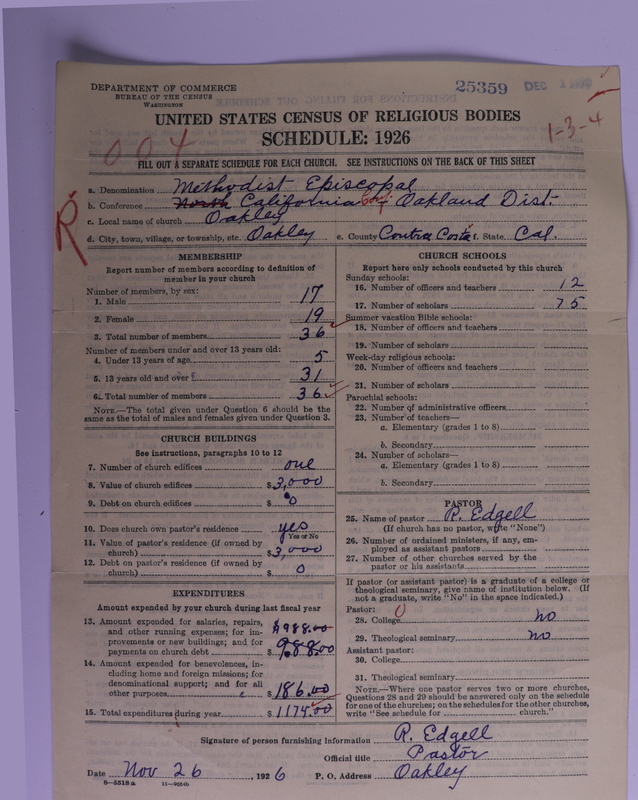 DEPARTMENT OF COMMERCE
BUREAU OF THE CENSUS
WASHINGTON
25359 DEC
UNITED STATES CENSUS OF RELIGIOUS BODIES
SCHEDULE: 1926
1-3-4
004
FILL OUT A SEPARATE SCHEDULE FOR EACH CHURCH. SEE INSTRUCTIONS ON THE BACK OF THIS SHEET
R
a. Denomination Methodist Episcopal
b. Conference North California Conf Oakland Dist.
c. Local name of church Oakley
d. City, town, village, or township, etc. Oakley e. County Contra Costa f. State Cal.
MEMBERSHIP
Report number of members according to definition of
member in your church
Number of members, by sex:
1. Male 17
2. Female 19
3. Total number of members 36
Number of members under and over 13 years old:
4. Under 13 years of age 5
5. 13 years old and over 31
6. Total number of members 36
NOTE.—The total given under Question 6 should be
same as the total of males and females given under Question 3.
CHURCH BUILDINGS
See instructions, paragraphs 10 to 12
7. Number of church edifices one
8. Value of church edifices $3,000
9. Debt on church edifices $0
10. Does church own pastor's residence yes
Yes or No
11. Value of pastor's residence (if owned by
church) $3,000
12. Debt on pastor's residence (if owned by
church) $0
EXPENDITURES
Amount expended by your church during last fiscal year
13. Amount expended for salaries, repairs, $988.00
and other running expenses; for im-
provements or new buildings; and for
payments on church debt $988.00
14. Amount expended for benevolences, in-
cluding home and foreign missions; for
denominational support; and for all
other purposes $186.00
15. Total expenditures during year $1174.00
CHURCH SCHOOLS
Report here only schools conducted by this church
Sunday schools:
16. Number of officers and teachers 12
17. Number of scholars 75
Summer vacation Bible schools:
18. Number of officers and teachers
19. Number of scholars
Week-day religious schools:
20. Number of officers and teachers
21. Number of scholars
Parochial schools:
22. Number of administrative officers
23. Number of teachers—
a. Elementary (grades 1 to 8)
b. Secondary
24. Number of scholars—
a. Elementary (grades 1 to 8)
b. Secondary
PASTOR
25. Name of pastor R. Edgell
(If church has no pastor, write "None")
26. Number of ordained ministers, if any, em-
ployed as assistant pastors
27. Number of other churches served by the
pastor or his assistants
If pastor (or assistant pastor) is a graduate of a college or
theological seminary, give name of institution below. (If
not a graduate, write "No" in the space indicated.)
Pastor:
28. College no
29. Theological seminary no
Assistant pastor:
30. College
31. Theological seminary
NOTE.—Where one pastor serves two or more churches,
Questions 28 and 29 should be answered only on the schedule
for one of the churches; on the schedules for the other churches,
write "See schedule for church."
Signature of person furnishing information R. Edgell
Official title Pastor
Date Nov 26, 1926 P. O. Address Oakley
8—5518a